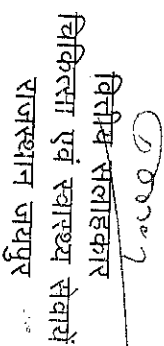 वित्तीय सलाहकार
चिकित्सा एवं स्वास्थ्य सेवायें
राजस्थान जयपुर